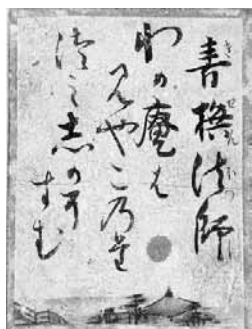 喜撰法師
わか庵は
みやこ乃た
つミ志かそ
すむ